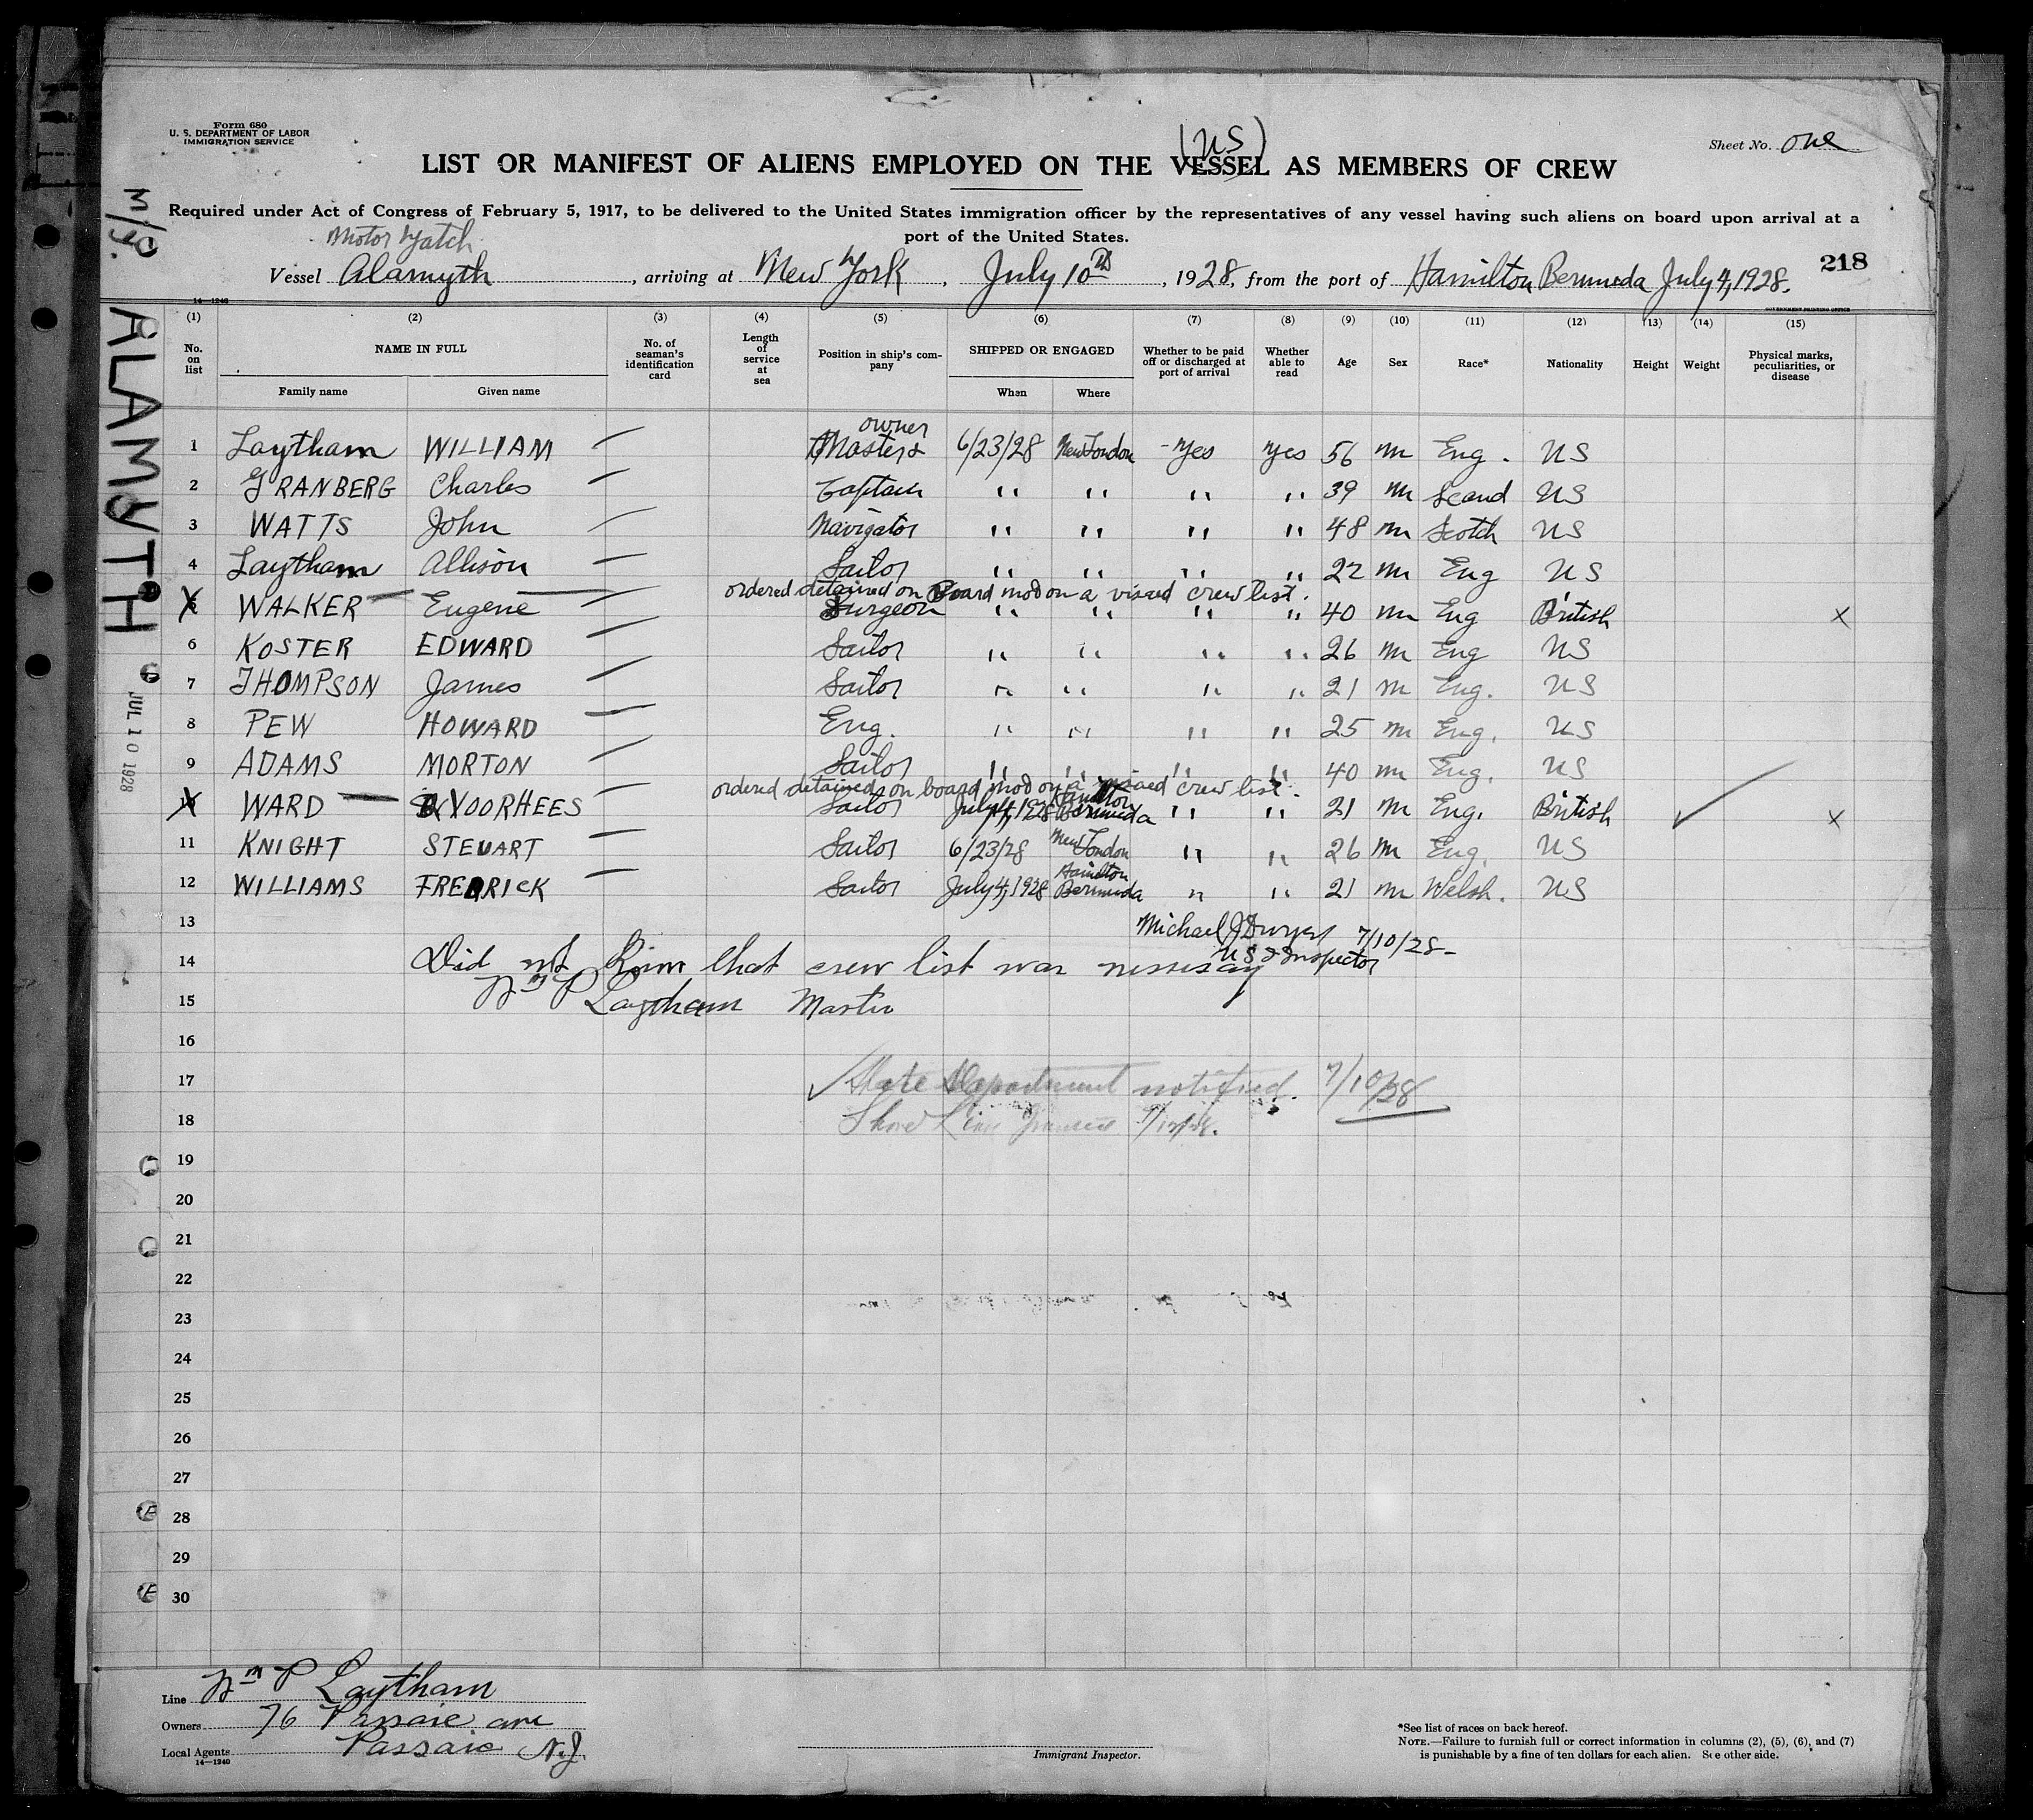 Form 680
U. S. DEPARTMENT OF LABOR
IMMIGRATION SERVICE
Sheet No. one
(US)
LIST OR MANIFEST OF ALIENS EMPLOYED ON THE VESSEL AS MEMBERS OF CREW
Required under Act of Congress of February 5, 1917, to be delivered to the United States immigration officer by the representatives of any vessel having such aliens on board upon arrival at a
port of the United States.
Motor Yatch
Vessel Alamyth, arriving at New York, July 10th, 1928, from the port of Hamilton Bermuda July 4, 1928.
218
M/Y.
ALAMYTH
JUL 10 1928
14-1240
GOVERNMENT PRINTING OFFICE
(1) (2) (3) (4) (5) (6) (7) (8) (9) (10) (11) (12) (13) (14) (15)
No. on list NAME IN FULL No. of seaman's identification card Length of service at sea Position in ship's company SHIPPED OR ENGAGED Whether to be paid off or discharged at port of arrival Whether able to read Age Sex Race* Nationality Height Weight Physical marks, peculiarities, or disease
Family name Given name When Where
owner
1 Laytham WILLIAM Master & 6/23/28 New London Yes Yes 56 m Eng. US
2 GRANBERG Charles Captain " " " " 39 m Scand US
3 WATTS John Navigator " " " " 48 m Scotch US
4 Laytham Allison Sailor " " " " 22 m Eng US
ordered detained on Board mod on a visaed crew list.
5 WALKER Eugene Surgeon " " " " 40 m Eng British X
6 KOSTER EDWARD Sailor " " " " 26 m Eng US
7 THOMPSON James Sailor " " " " 21 m Eng. US
8 PEW HOWARD Eng. " " " " 25 m Eng. US
9 ADAMS MORTON Sailor " " " " 40 m Eng. US
ordered detained on board mod on a visaed crew list.
10 WARD VOORHEES Sailor July 4, 1928 Hamilton Bermuda " " 21 m Eng. British X
11 KNIGHT STEUART Sailor 6/23/28 New London " " 26 m Eng. US
12 WILLIAMS FREDRICK Sailor July 4, 1928 Hamilton Bermuda " " 21 m Welsh. US
13
Michael J Dwyer 7/10/28
US I Inspector
14 Did not know that crew list was nessisay
Wm P Laytham Master
15
16
17 State Department notified. 7/10/28
18
19
20
21
22
23
24
25
26
27
28
29
30
Line Wm P Laytham
Owners 76 Passaic ave
Local Agents Passaic N.J.
14-1240
Immigrant Inspector.
*See list of races on back hereof.
NOTE.—Failure to furnish full or correct information in columns (2), (5), (6), and (7)
is punishable by a fine of ten dollars for each alien. See other side.